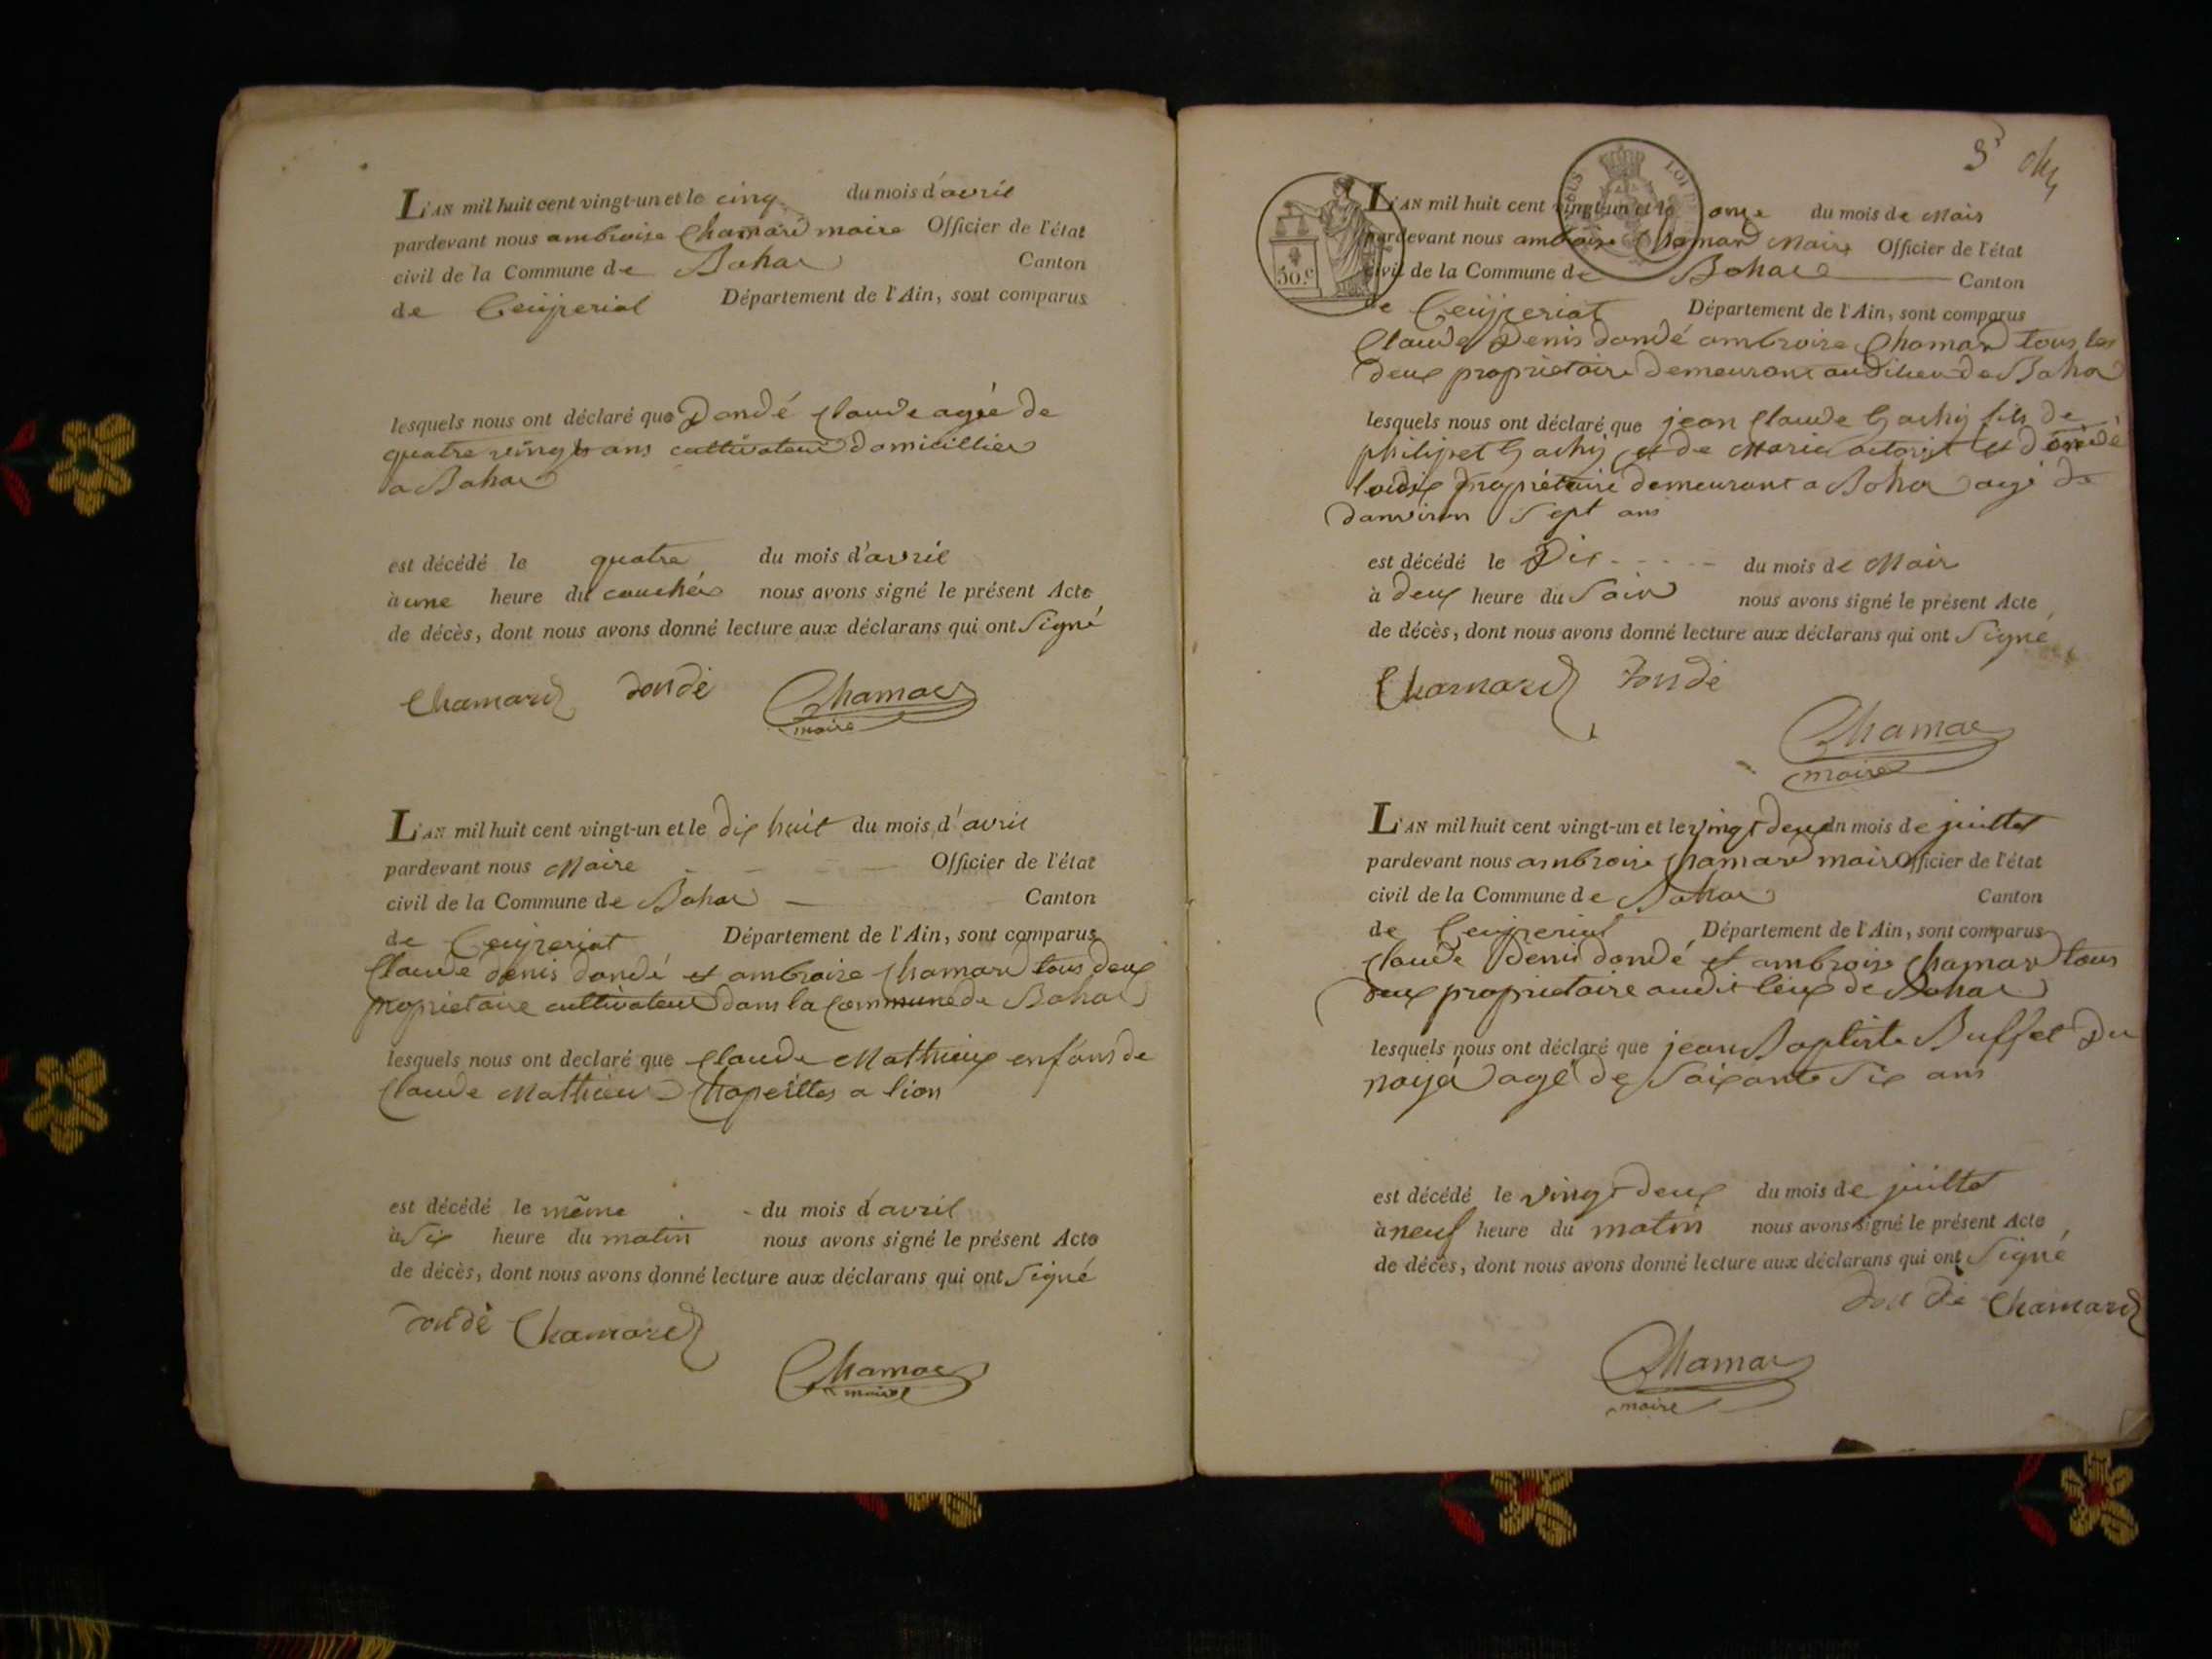 L'AN mil huit cent vingt-un et le cinq du mois d'avril
pardevant nous ambroise Chamard maire Officier de l'état
civil de la Commune de Bohas Canton
de Ceÿzeriat Département de l'Ain, sont comparus
lesquels nous ont déclaré que Dondé Claude agée de
quatre vingts ans cultivateur domicillier
a Bohas
est décédé le quatre du mois d'avril
à une heure du couchés nous avons signé le présent Acte
de décès, dont nous avons donné lecture aux déclarans qui ont Signé
Chamard dondé Chamar
maire
L'AN mil huit cent vingt-un et le dix huit du mois d'avril
pardevant nous Maire Officier de l'état
civil de la Commune de Bohas Canton
de Ceÿzeriat Département de l'Ain, sont comparus
Claude denis dondé et ambroise Chamard tous deux
propriétaire cultivateur dans la Commune de Bohas
lesquels nous ont declaré que Claude Mathieux enfans de
Claude Mathieu a lion
est décédé le même du mois d'avril
à Six heure du matin nous avons signé le présent Acte
de décès, dont nous avons donné lecture aux déclarans qui ont Signé
dondé Chamard
Chamar
maire
5
L'AN mil huit cent vingt-un et le onze du mois de Mais
pardevant nous ambroise Chamard Maire Officier de l'état
30.c
civil de la Commune de Bohas Canton
de Ceÿzeriat Département de l'Ain, sont comparus
Claude Denis dondé ambroise Chamard tous les
deux propriétaire demeurant audilieu de Bohas
lesquels nous ont déclaré que jean Claude Gachÿ fils de
philipet Gachÿ et de Marie
propriétaire demeurant a Bohas agé de
danviron Sept ans
est décédé le Dix du mois de Mais
à deux heure du Soir nous avons signé le présent Acte
de décès, dont nous avons donné lecture aux déclarans qui ont Signé
Chamard dondé
Chamar
maire
L'AN mil huit cent vingt-un et le vingt deux du mois de juillet
pardevant nous ambroise Chamard maire Officier de l'état
civil de la Commune de Bohas Canton
de Ceÿzeriat Département de l'Ain, sont comparus
Claude Denis dondé et ambroise Chamard tous
deux propriétaire audit lieux de Bohas
lesquels nous ont déclaré que jean Baptiste Buffet Du
noyer agé de Soixante Six ans
est décédé le vingt deux du mois de juillet
à neuf heure du matin nous avons signé le présent Acte
de décès, dont nous avons donné lecture aux déclarans qui ont Signé
dondé Chamard
Chamar
maire